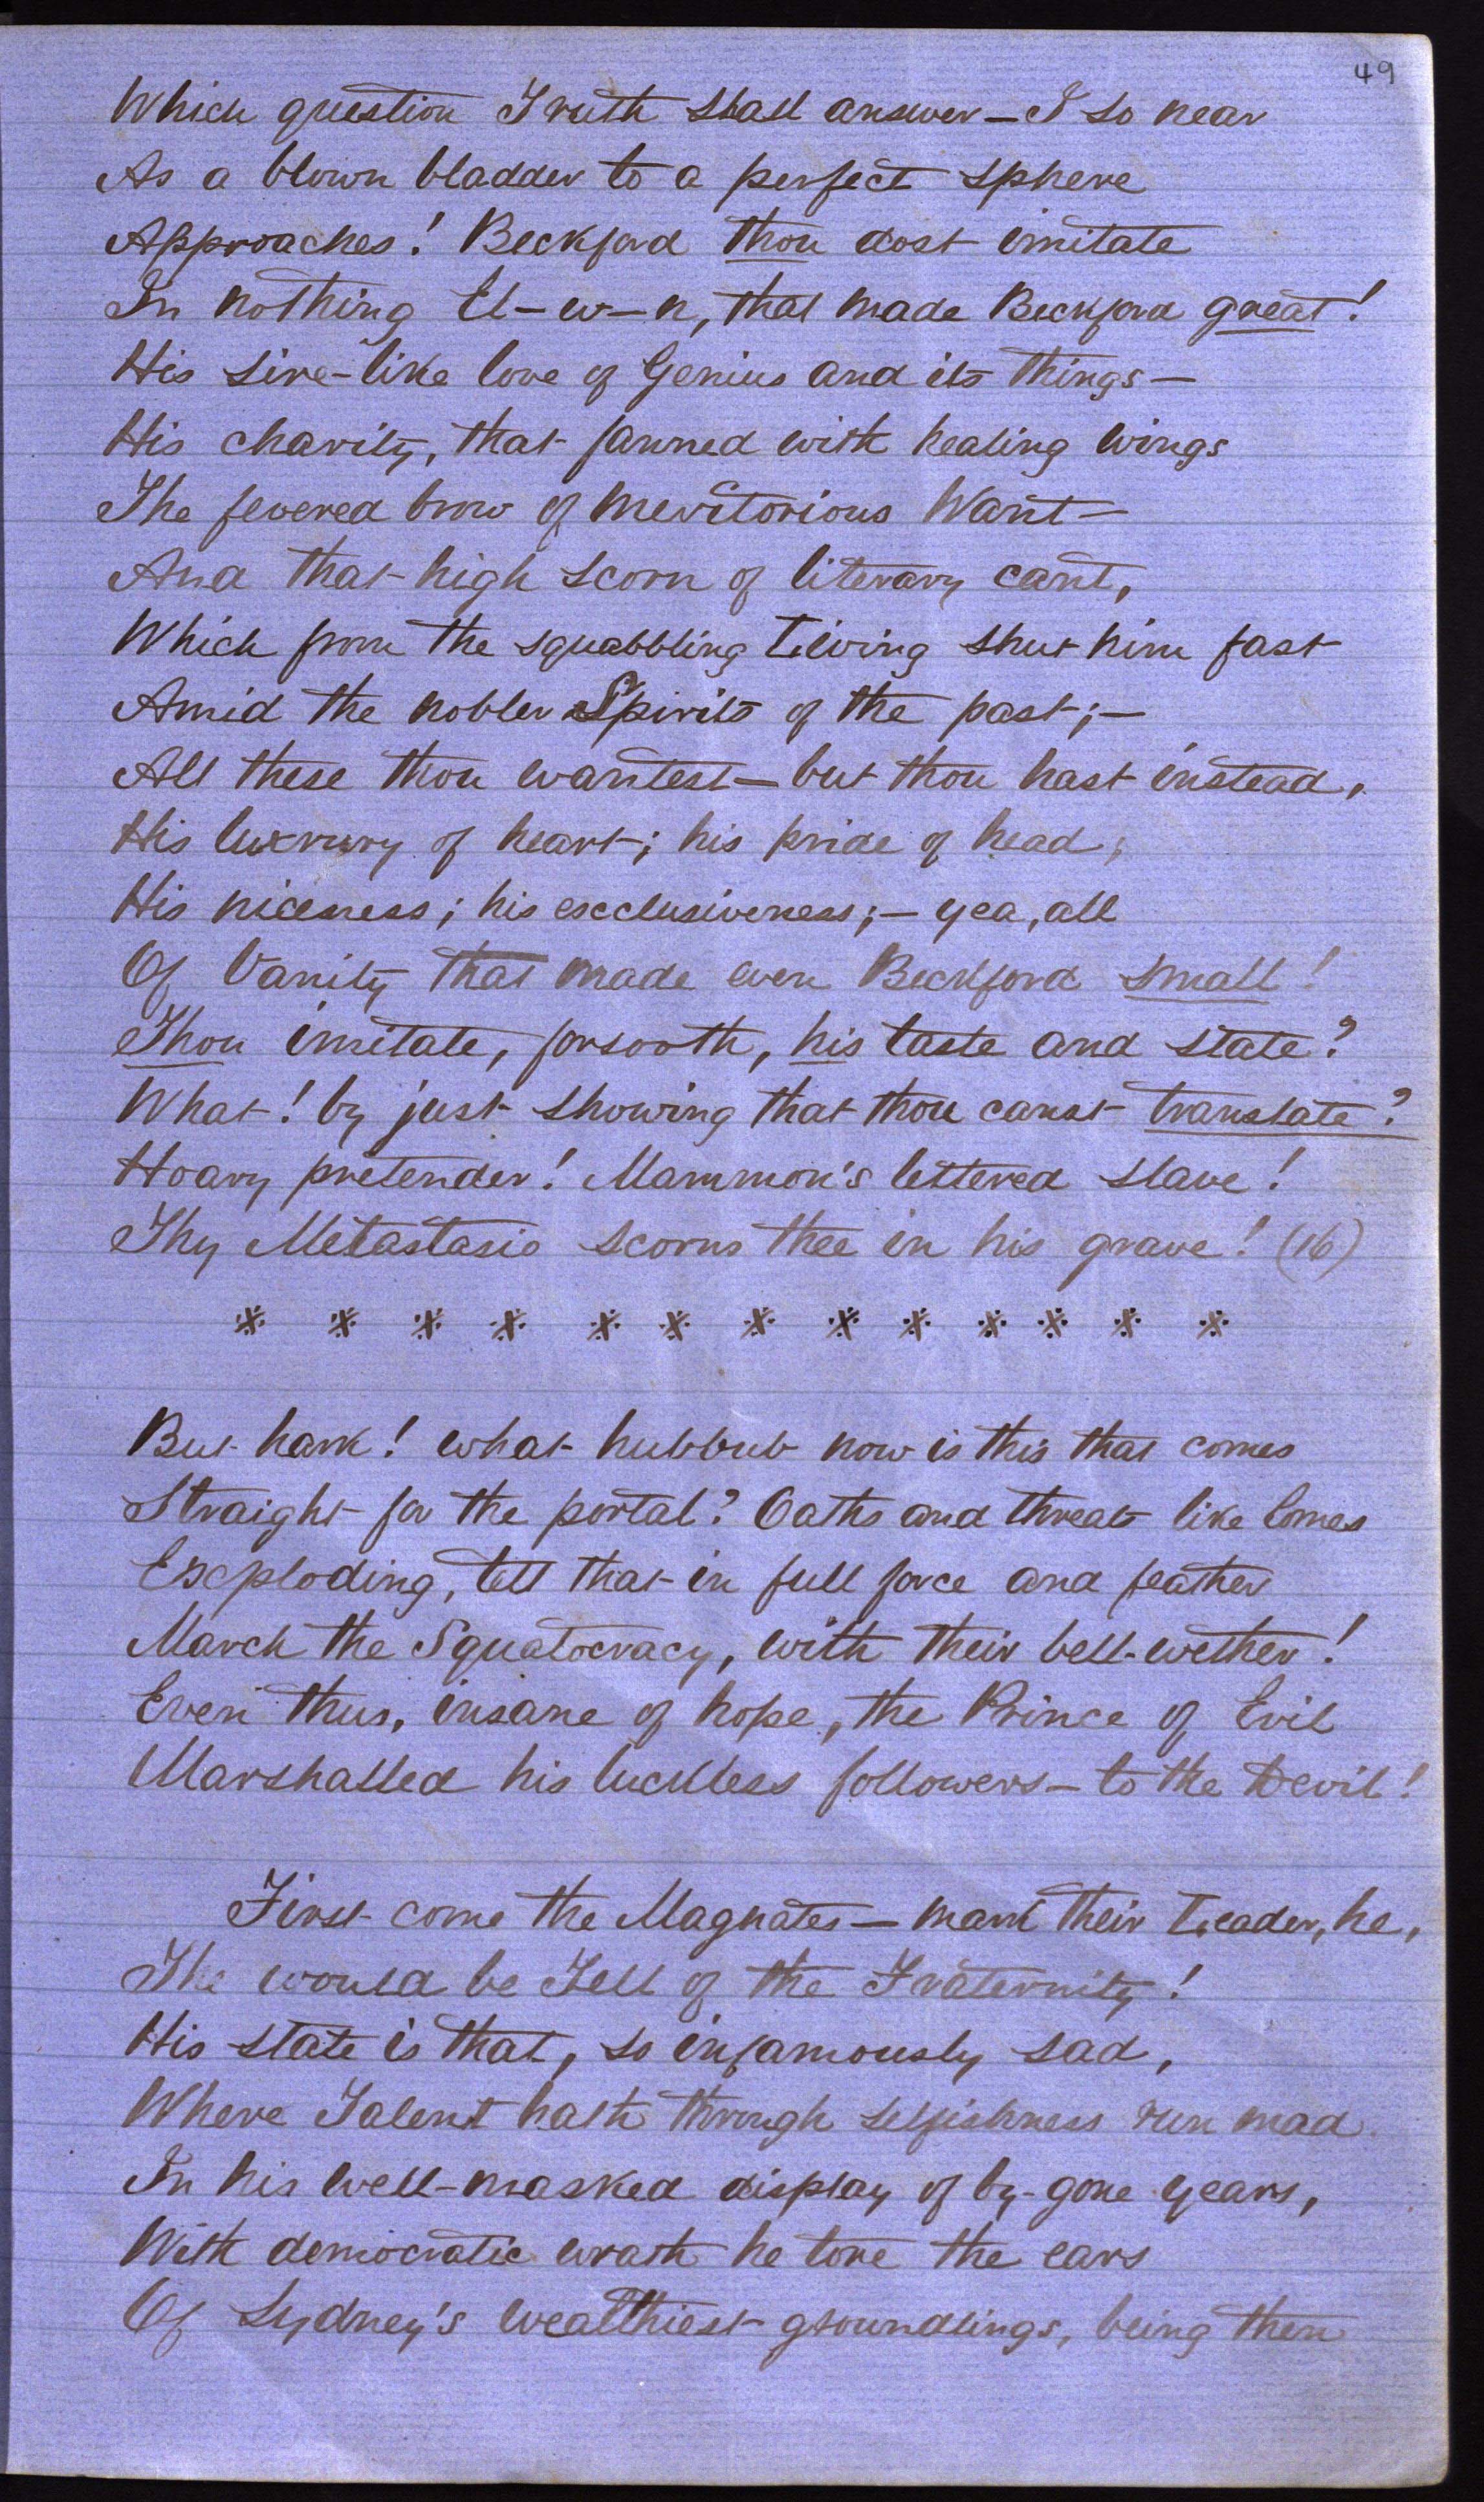 49
Which question Truth shall answer – I so near
As a blown bladder to a perfect sphere
Approaches! Beckford thou dost imitate
In nothing El–w–n, that made Beckford great!
His sire-like love of Genius and its things –
His charity, that fanned with healing wings
The fevered brow of meritorious Want –
And that high scorn of literary cant,
Which from the squabbling Living shut him fast
Amid the nobler Spirits of the past; –
All these thou wantest – but thou hast instead,
His luxrury of heart; his pride of head;
His niceness; his exclusiveness; – yea, all
Of Vanity that made even Beckford small!
Thou imitate, forsooth, his taste and state?
What! by just showing that thou canst translate?
Hoary pretender! Mammon's lettered slave!
Thy Metastasio scorns thee in his grave! (16)
※ ※ ※ ※ ※ ※ ※ ※ ※ ※ ※ ※ ※
But hark! what hubbub now is this that comes
Straight for the portal? Oaths and threats like bomes
Exploding, tell that in full force and feather
March the Squatocracy, with their bell-wether!
Even thus, insane of hope, the Prince of Evil
Marshalled his luckless followers – to the Devil!
First come the Magnates – mark their Leader, he,
The would be Tell of the Fraternity!
His state is that, so infamously sad,
Where Talent hath through selfishness run mad.
In his well-masked display of by-gone years,
With democratic wrath he tore the ears
Of Sydney's wealthiest groundlings, being then